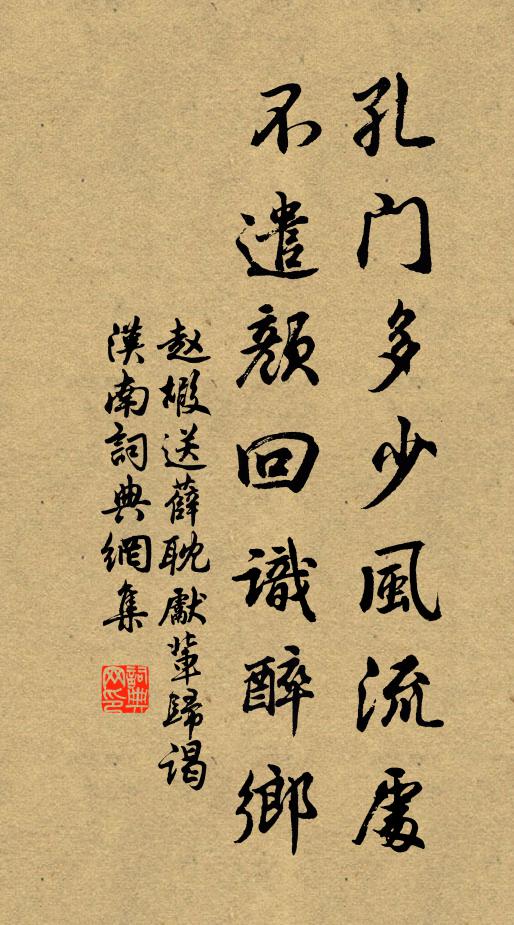 孔门多少風流處
不遣顏回識醉鄉
赵嘏送薛耽獻輩歸谒
漢南詞典網集
詞典
网印